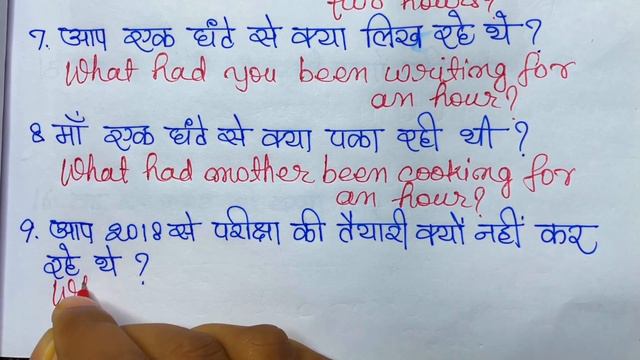 two hours?
7. आप एक घंटे से क्या लिख रहे थे ?
What had you been writing for
an hour?
8 माँ एक घंटे से क्या पका रही थी ?
What had another been cooking for
an hour?
9. आप 2018 से परीक्षा की तैयारी क्यों नहीं कर
रहे थे ?